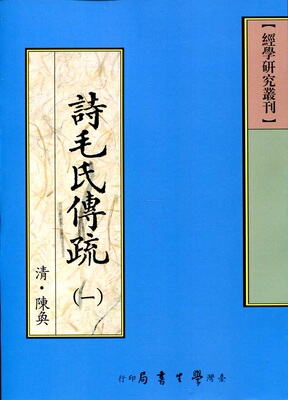 【經學研究叢刊】
詩毛氏傳疏
(一)
清·陳奐
臺灣學生書局印行